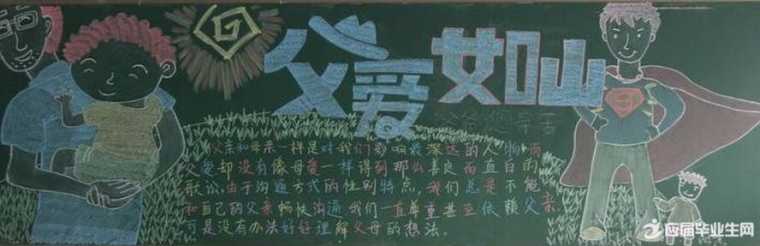 父爱如山
父亲和母亲一样是对我们影响最深远的人物,而
父爱却没有像母爱一样得到那么善良而直白的
歌讼,由于沟通方式的性别特点,我们总是不能
和自己的父亲畅快沟通,我们一直尊重甚至依赖父亲
可是没有办法好好理解父母的想法。
应届毕业生网